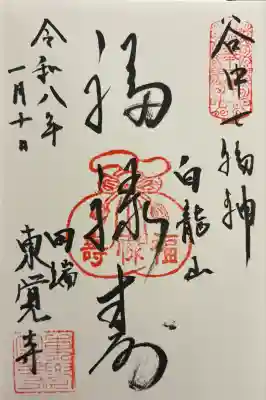 谷中七福神
白龍山
福禄寿
福禄寿
田端
東覚寺
令和八年
一月十日